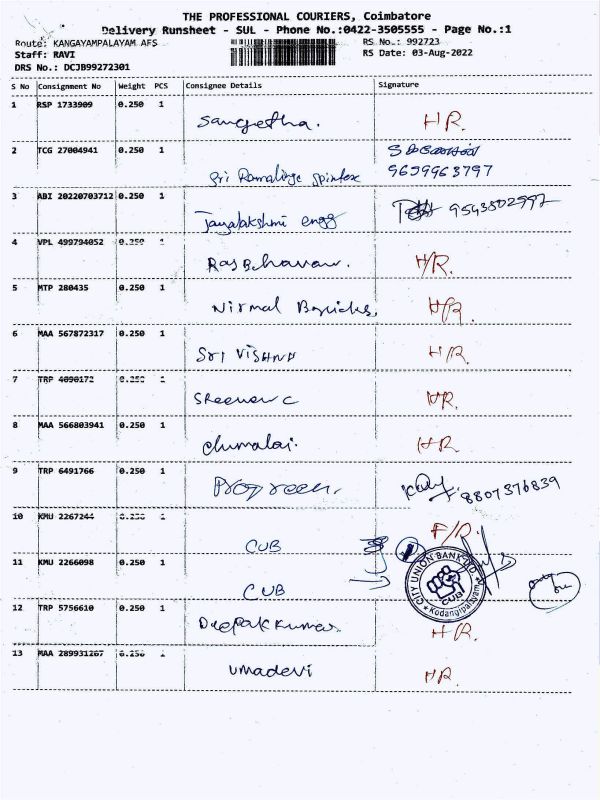 THE PROFESSIONAL COURIERS, Coimbatore
Delivery Runsheet - SUL - Phone No.:0422-3505555 - Page No.:1
Route: KANGAYAMPALAYAM AFS RS No.: 992723
Staff: RAVI RS Date: 03-Aug-2022
DRS No.: DCJB99272301
S No Consignment No Weight PCS Consignee Details Signature
1 RSP 1733909 0.250 1 Sangeetha. HR.
2 TCG 27004941 0.250 1 Sri Ramalinge Spintex 9659963797
3 ABI 20220703712 0.250 1 Jayalakshmi engg 9543502997
4 VPL 499794052 0.250 1 H/R.
5 MTP 280435 0.250 1 Nirmal H/R.
6 MAA 567872317 0.250 1 Sri Vishnu H/R.
7 TRP 4090172 0.250 1 HR.
8 MAA 566803941 0.250 1 HR.
9 TRP 6491766 0.250 1 8807376839
10 KMU 2267244 0.250 1 CUB F/R.
11 KMU 2266098 0.250 1 CUB
CITY UNION BANK LTD
CUB
Kodangipalayam
12 TRP 5756610 0.250 1 Deepak Kumar HR.
13 MAA 289931267 0.250 1 Umadevi HR.